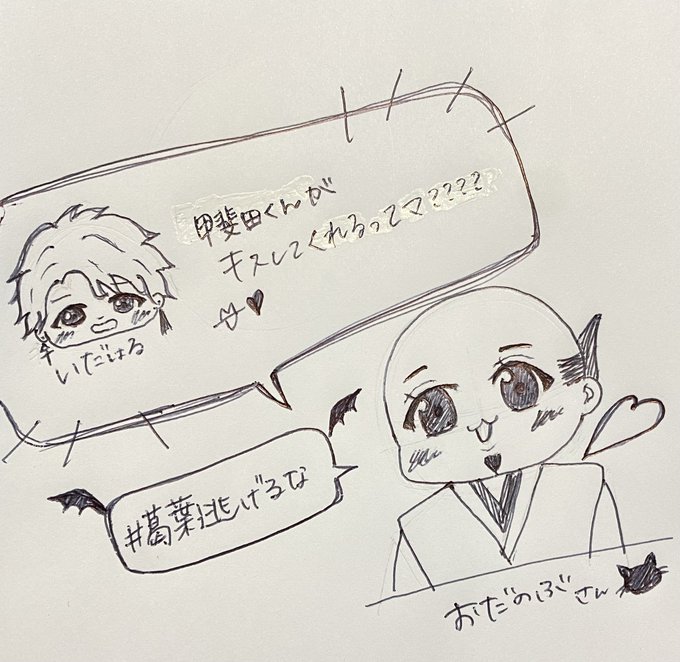 甲斐田くんが
キスしてくれるってマ????
いだはる
#葛葉逃げるな
おだのぶさん